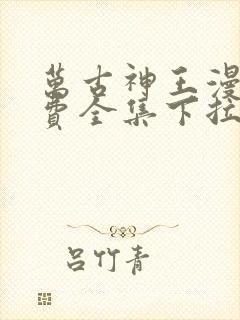 萬古神王漫
費全集下拉
呂竹青